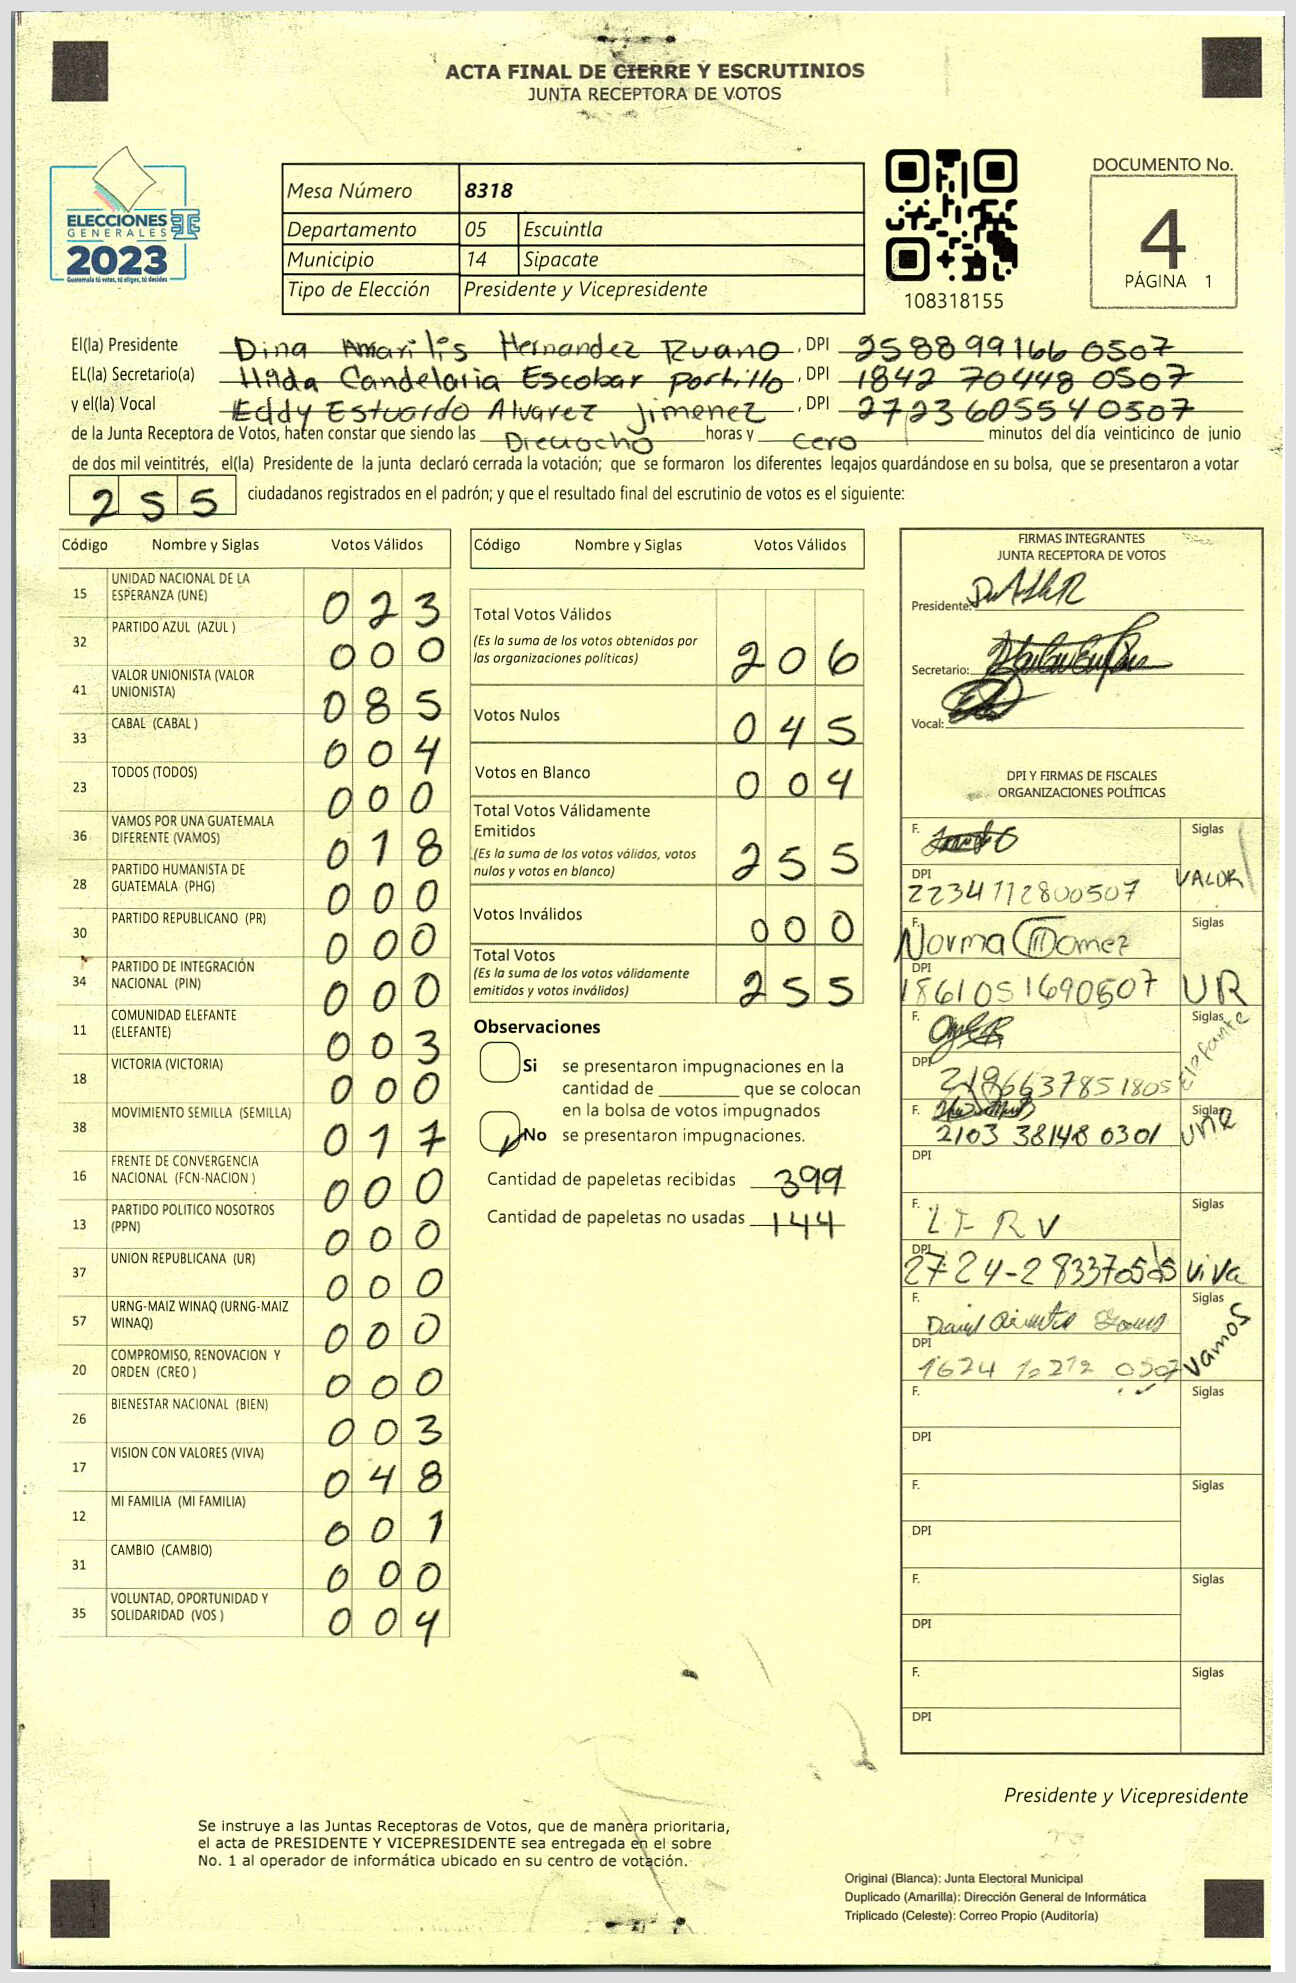 ACTA FINAL DE CIERRE Y ESCRUTINIOS
JUNTA RECEPTORA DE VOTOS
ELECCIONES
GENERALES
2023
Guatemala tú votas, tú eliges, tú decides
Mesa Número 8318
Departamento 05 Escuintla
Municipio 14 Sipacate
Tipo de Elección Presidente y Vicepresidente
108318155
DOCUMENTO No.
4
PÁGINA 1
El(la) Presidente Dina Amarilis Hernandez Ruano, DPI 2588991660507
EL(la) Secretario(a) Hilda Candelaria Escobar Portillo, DPI 1842 70448 0507
y el(la) Vocal Eddy Estuardo Alvarez Jimenez, DPI 2723605540507
de la Junta Receptora de Votos, hacen constar que siendo las Dieciocho horas y cero minutos del día veinticinco de junio
de dos mil veintitrés, el(la) Presidente de la junta declaró cerrada la votación; que se formaron los diferentes legajos guardándose en su bolsa, que se presentaron a votar
255 ciudadanos registrados en el padrón; y que el resultado final del escrutinio de votos es el siguiente:
Código Nombre y Siglas Votos Válidos
15 UNIDAD NACIONAL DE LA ESPERANZA (UNE) 023
32 PARTIDO AZUL (AZUL ) 000
41 VALOR UNIONISTA (VALOR UNIONISTA) 085
33 CABAL (CABAL ) 004
23 TODOS (TODOS) 000
36 VAMOS POR UNA GUATEMALA DIFERENTE (VAMOS) 018
28 PARTIDO HUMANISTA DE GUATEMALA (PHG) 000
30 PARTIDO REPUBLICANO (PR) 000
34 PARTIDO DE INTEGRACIÓN NACIONAL (PIN) 000
11 COMUNIDAD ELEFANTE (ELEFANTE) 003
18 VICTORIA (VICTORIA) 000
38 MOVIMIENTO SEMILLA (SEMILLA) 017
16 FRENTE DE CONVERGENCIA NACIONAL (FCN-NACION ) 000
13 PARTIDO POLITICO NOSOTROS (PPN) 000
37 UNION REPUBLICANA (UR) 000
57 URNG-MAIZ WINAQ (URNG-MAIZ WINAQ) 000
20 COMPROMISO, RENOVACION Y ORDEN (CREO ) 000
26 BIENESTAR NACIONAL (BIEN) 003
17 VISION CON VALORES (VIVA) 048
12 MI FAMILIA (MI FAMILIA) 001
31 CAMBIO (CAMBIO) 000
35 VOLUNTAD, OPORTUNIDAD Y SOLIDARIDAD (VOS ) 004
Código Nombre y Siglas Votos Válidos
Total Votos Válidos 206
(Es la suma de los votos obtenidos por
las organizaciones políticas)
Votos Nulos 045
Votos en Blanco 004
Total Votos Válidamente
Emitidos 255
(Es la suma de los votos válidos, votos
nulos y votos en blanco)
Votos Inválidos 000
Total Votos 255
(Es la suma de los votos válidamente
emitidos y votos inválidos)
Observaciones
Si se presentaron impugnaciones en la
cantidad de ________ que se colocan
en la bolsa de votos impugnados
No se presentaron impugnaciones.
Cantidad de papeletas recibidas 399
Cantidad de papeletas no usadas 144
FIRMAS INTEGRANTES
JUNTA RECEPTORA DE VOTOS
Presidente:
Secretario:
Vocal:
DPI Y FIRMAS DE FISCALES
ORGANIZACIONES POLÍTICAS
F. Siglas
DPI VALOR
2234112800507
F. Norma Gomez Siglas
DPI
1861051690507 UR
F. Siglas
DPI Elefante
F. Siglas
2103 38148 0301 une
DPI
F. Siglas
DPI
viva
F. Siglas
DPI vamos
F. Siglas
DPI
F. Siglas
DPI
F. Siglas
DPI
F. Siglas
DPI
Presidente y Vicepresidente
Se instruye a las Juntas Receptoras de Votos, que de manera prioritaria,
el acta de PRESIDENTE Y VICEPRESIDENTE sea entregada en el sobre
No. 1 al operador de informática ubicado en su centro de votación.
Original (Blanca): Junta Electoral Municipal
Duplicado (Amarilla): Dirección General de Informática
Triplicado (Celeste): Correo Propio (Auditoría)